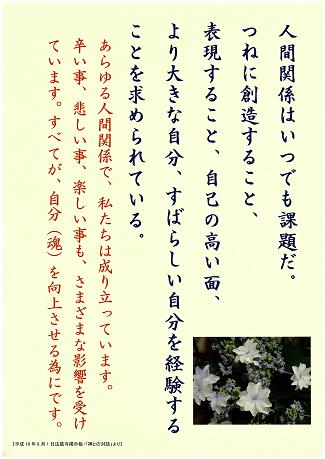 人間関係はいつでも課題だ。
つねに創造すること、
表現すること、自己の高い面、
より大きな自分、すばらしい自分を経験する
ことを求められている。
あらゆる人間関係で、私たちは成り立っています。
辛い事、悲しい事、楽しい事も、さまざまな影響を受け
ています。すべてが、自分（魂）を向上させる為にです。
【平成19年6月1日法龍寺掲示板・「神との対話」より】